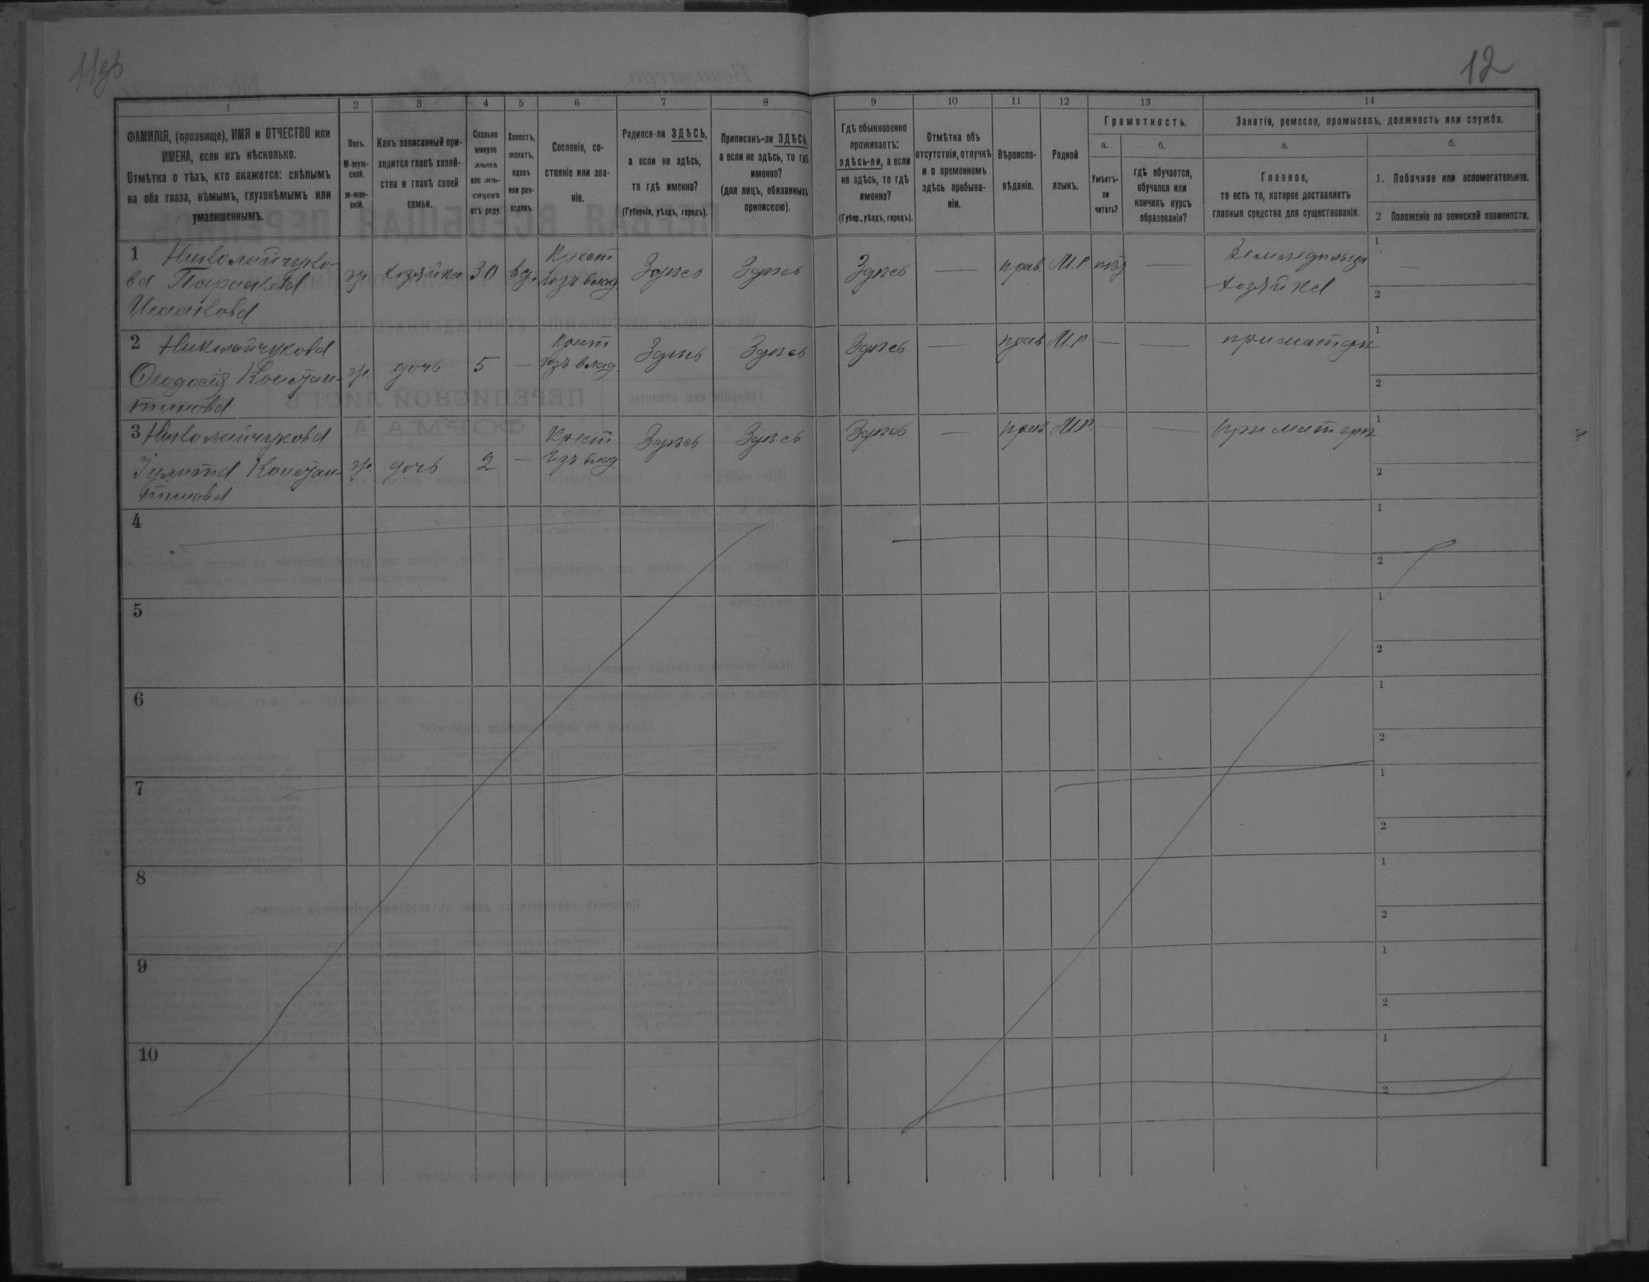 11об
12
1
2
3
4
5
6
7
8
9
10
11
12
13
14
ФАМИЛІЯ, (прозвище), ИМЯ и ОТЧЕСТВО или
ИМЕНА, если ихъ нѣсколько.
Отмѣтка о тѣхъ, кто окажется: слѣпымъ
на оба глаза, нѣмымъ, глухонѣмымъ или
умалишеннымъ.
Полъ.
М-муж-
ской.
ж-жен-
скій.
Какъ записанный при-
ходится главѣ хозяй-
ства и главѣ своей
семьи.
Сколько
минуло
лѣтъ
или мѣ-
сяцевъ
отъ роду.
Холостъ,
женатъ,
вдовъ
или раз-
веденъ.
Сословіе, со-
стояніе или зва-
ніе.
Родился-ли ЗДѢСЬ,
а если не здѣсь,
то гдѣ именно?
(Губернія, уѣздъ, городъ).
Приписанъ-ли ЗДѢСЬ,
а если не здѣсь, то гдѣ
именно?
(для лицъ, обязанныхъ
припискою).
Гдѣ обыкновенно
проживаетъ:
здѣсь-ли, а если
не здѣсь, то гдѣ
именно?
(Губер., уѣздъ, городъ).
Отмѣтка объ
отсутствіи, отлучкѣ
и о временномъ
здѣсь пребыва-
ніи.
Вѣроиспо-
вѣданіе.
Родной
языкъ.
Грамотность.
а.
Умѣетъ-
ли
читать?
б.
гдѣ обучается,
обучался или
кончилъ курсъ
образованія?
Занятія, ремесло, промыселъ, должность или служба.
а.
Главное,
то есть то, которое доставляетъ
главныя средства для существованія.
б.
1. Побочное или вспомогательное.
2 Положеніе по воинской повинности.
1 Николайчуко-
ва Параскева
Исаакова
ж. хозяйка 30 вд.
Крест
изъ влад
Здѣсь Здѣсь Здѣсь — прав М.Р нѣтъ —
Земледѣлица
хозяйка
1 —
2
2 Николайчукова
Феодосія Констан-
тинова
ж. дочь 5 —
Крест
изъ влад.
Здѣсь Здѣсь Здѣсь — прав М.Р — — при матери
1
2
3 Николайчукова
Іулита Констан-
тинова
ж. дочь 2 —
Крест
изъ влад
Здѣсь Здѣсь Здѣсь — прав М.Р — — при матери
1
2
4
1
2
5
1
2
6
1
2
7
1
2
8
1
2
9
1
2
10
1
2